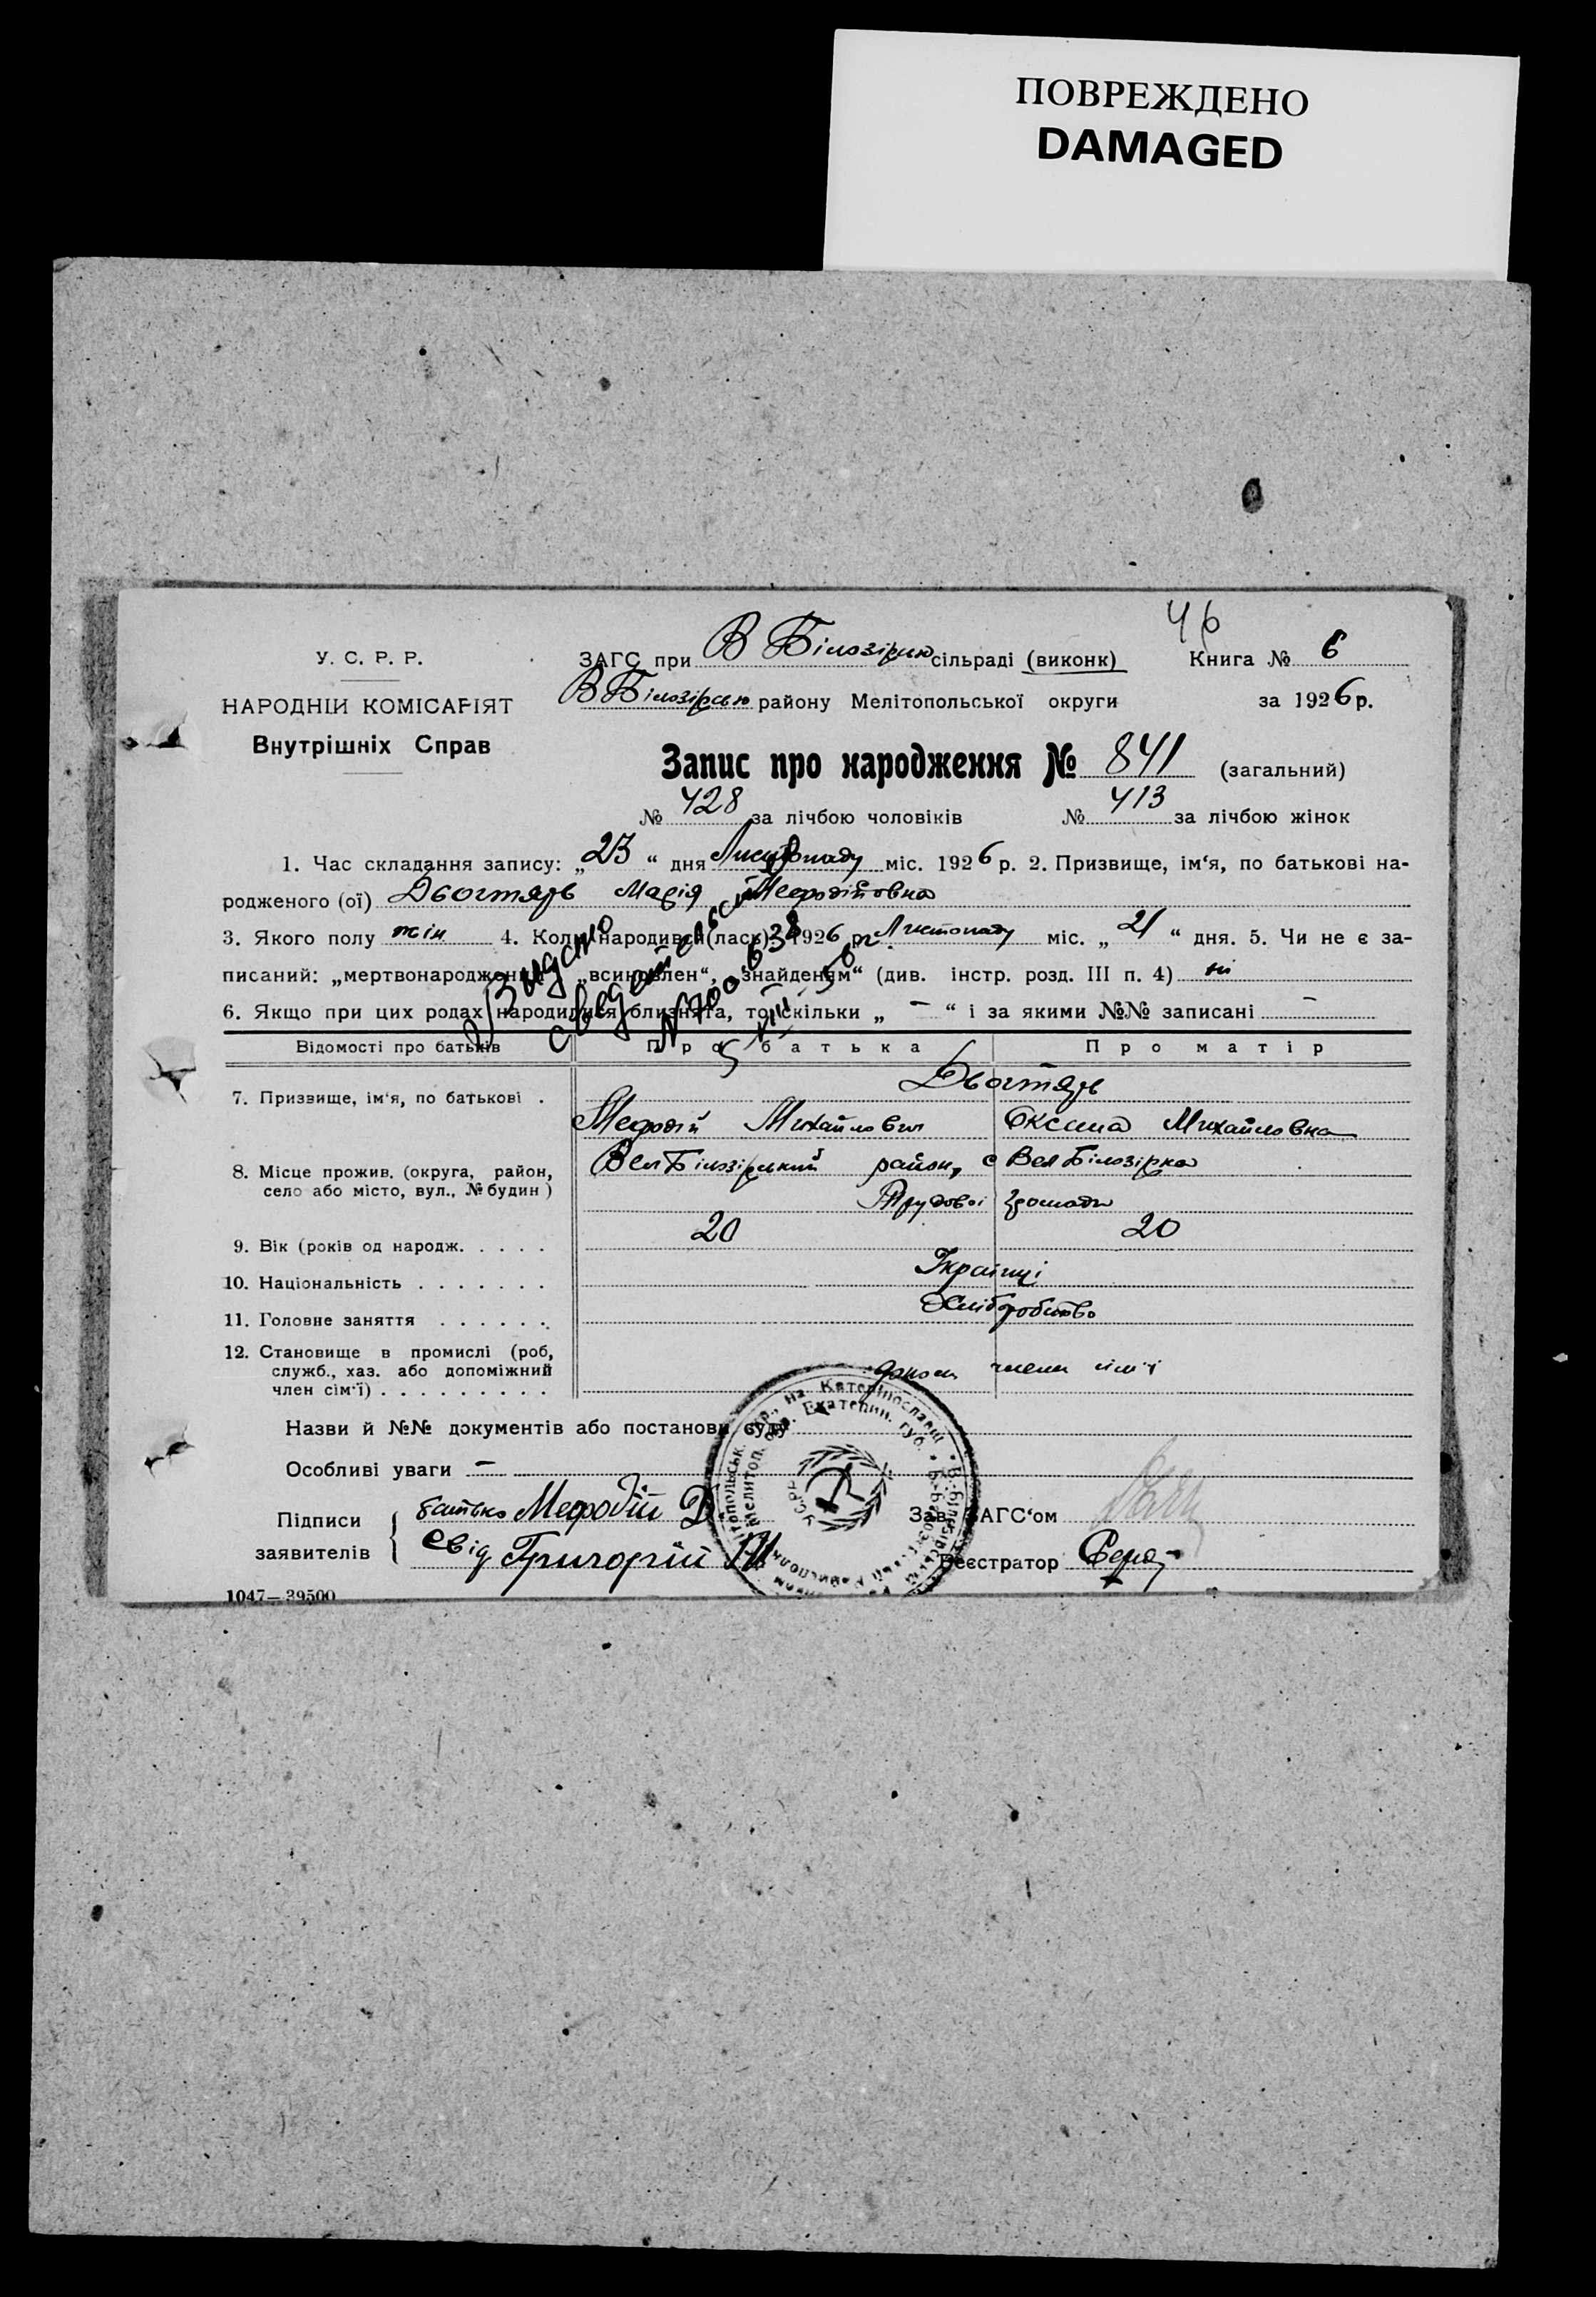 ПОВРЕЖДЕНО
DAMAGED
46
У. С. Р. Р.
ЗАГС при В Білозірки сільраді (виконк) Книга № 6
НАРОДНІЙ КОМІСАРІЯТ
В Білозірсью району Мелітопольської округи за 1926 р.
Внутрішніх Справ
Запис про народження № 841 (загальний)
№ 428 за лічбою чоловіків № 413 за лічбою жінок
1. Час складання запису: „23“ дня Листопаду міс. 1926 р. 2. Призвище, ім‘я, по батькові на-
родженого (ої) Двогтярь Марія Мефодійовна
3. Якого полу жін 4. Коли народився(лась): 1926 р. Листопаду міс. „21“ дня. 5. Чи не є за-
писаний: „мертвонароджений“ „всиновлен“, „знайденим“ (див. інстр. розд. III п. 4) ні
6. Якщо при цих родах народилися близнята, то скільки „ – “ і за якими №№ записані –
Видано
свидетельст
N 700638
5/XII 50 г.
Відомості про батьків Про батька Про матір
7. Призвище, ім‘я, по батькові . Двогтярь
Мефодій Михайлович Оксина Михайловна
8. Місце прожив. (округа, район,
село або місто, вул., № будин) Вел Білозірський район, с Вел Білозірка
Трудової громади
9. Вік (років од народж. . . . . 20 20
10. Національність . . . . . . . Українці
11. Головне заняття . . . . . . Хліборобство
12. Становище в промислі (роб,
служб., хаз. або допоміжний
член сім‘ї) . . . . . . . . . допом члени сім‘ї
Назви й №№ документів або постанови суду
Особливі уваги –
Підписи
заявителів
батько Мефодій Д
Свід Григорій
Зав. ЗАГС‘ом
Реєстратор
1047—39500